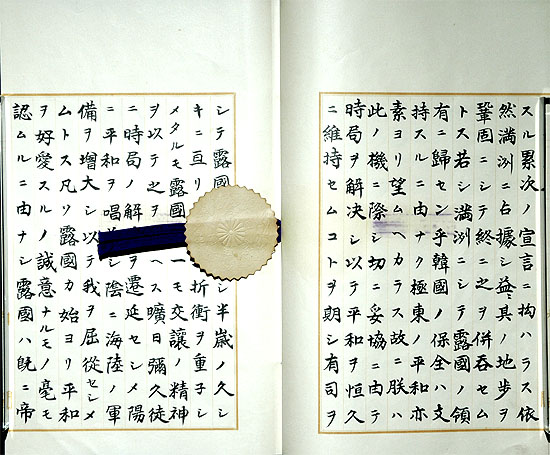 スル累次ノ宣言ニ拘ハラス依
然満洲ニ占據シ益〻其ノ地歩ヲ
鞏固ニシテ終ニ之ヲ併呑セム
トス若シ満洲ニシテ露國ノ領
有ニ歸セン乎韓國ノ保全ハ支
持スルニ由ナク極東ノ平和亦
素ヨリ望ムヘカラス故ニ朕ハ
此ノ機ニ際シ切ニ妥協ニ由テ
時局ヲ解決シ以テ平和ヲ恒久
ニ維持セムコトヲ期シ有司ヲ
シテ露國シ半歳ノ久シ
キニ亙リ折衝ヲ重子シ
メタルモ露國一モ交讓ノ精神
ヲ以テ之ヲヘス曠日彌久徒
ニ時局ノ解ヲ遷延セシメ陽
ニ平和ヲ唱シ陰ニ海陸ノ軍
備ヲ增大シ以テ我ヲ屈從セシメ
ムトス凡ソ露國カ始ヨリ平和
ヲ好愛スルノ誠意ナルモノ毫モ
認ムルニ由ナシ露國ハ旣ニ帝